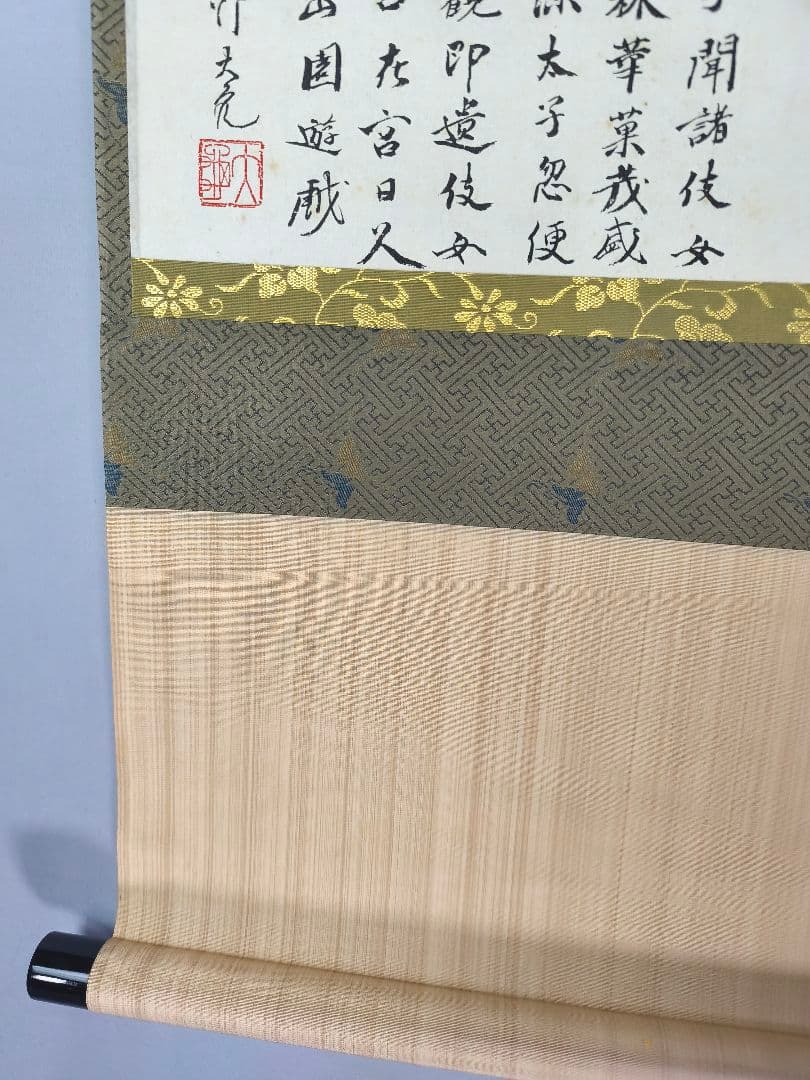 聞諸伎女
林華菓茂盛
涼太子忽便
觀即遣伎女
在宮日久
出園遊戯
大